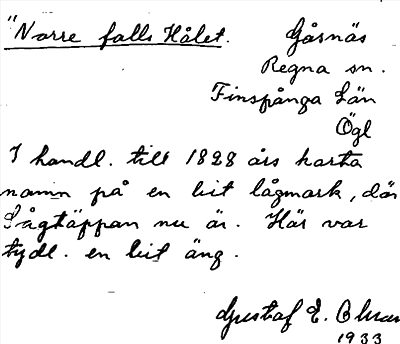 "Norre falls Hålet.
Gåsnäs
Regna sn.
Finspånga Län
Ögl
I handl. till 1828 års karta
namn på en bit lågmark, där
Sågtäppan nu är. Här var
tydl. en bit äng.
Gustaf E.
1933